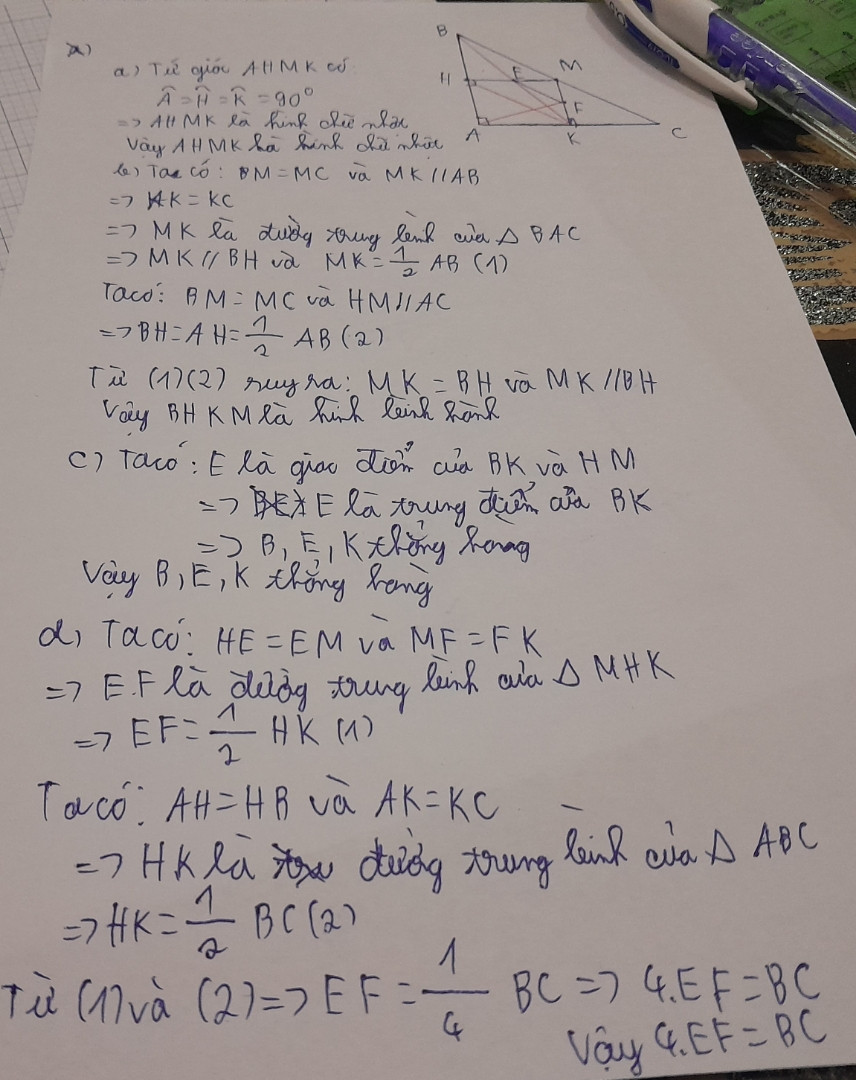 B
H
E
M
F
A
K
C
a) Tứ giác AHMK có
Â = Ĥ = K̂ = 90°
=> AHMK là hình chữ nhật
Vậy AHMK là hình chữ nhật
b) Ta có: BM = MC và MK // AB
=> AK = KC
=> MK là đường trung bình của Δ BAC
=> MK // BH và MK = 1/2 AB (1)
Ta có: BM = MC và HM // AC
=> BH = AH = 1/2 AB (2)
Từ (1)(2) suy ra: MK = BH và MK // BH
Vậy BHKM là hình bình hành
c) Ta có: E là giao điểm của BK và HM
=> E là trung điểm của BK
=> B, E, K thẳng hàng
Vậy B, E, K thẳng hàng
d) Ta có: HE = EM và MF = FK
=> E.F là đường trung bình của Δ MHK
=> EF = 1/2 HK (1)
Ta có: AH = HB và AK = KC
=> HK là đường trung bình của Δ ABC
=> HK = 1/2 BC (2)
Từ (1) và (2) => EF = 1/4 BC => 4.EF = BC
Vậy 4.EF = BC